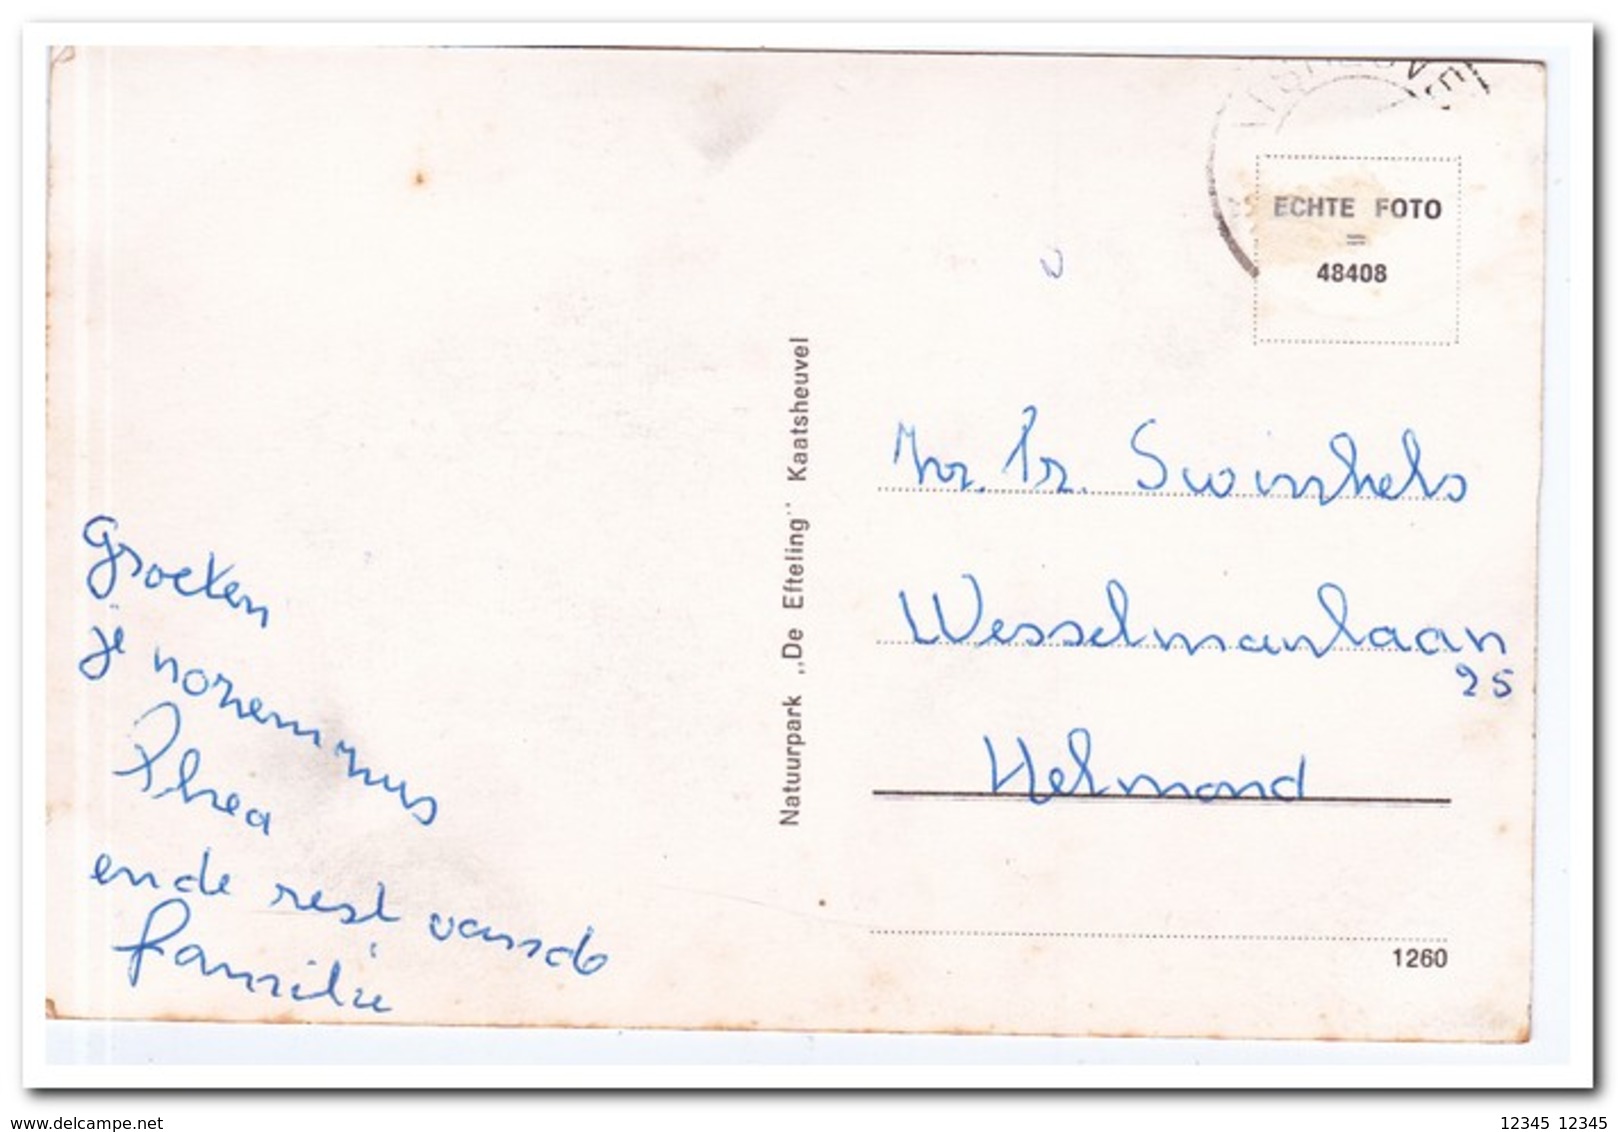 ECHTE FOTO
=
48408
Natuurpark „De Efteling" Kaatsheuvel
Groeten
je
Thea
en de rest van de
familie
Hr. Pr. Swinkels
Wesselmanlaan
25
Helmond
1260
delcampe.net
12345 12345